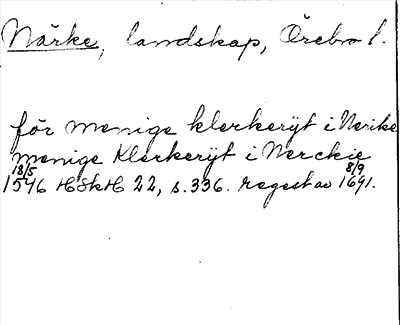 Närke, landskap, Örebro l.
för menige klerkerijt i Nerike
menige Klerkerijt i Nerckie
18/5 1546 HSkH 22, s. 336. regest av 8/9 1691.